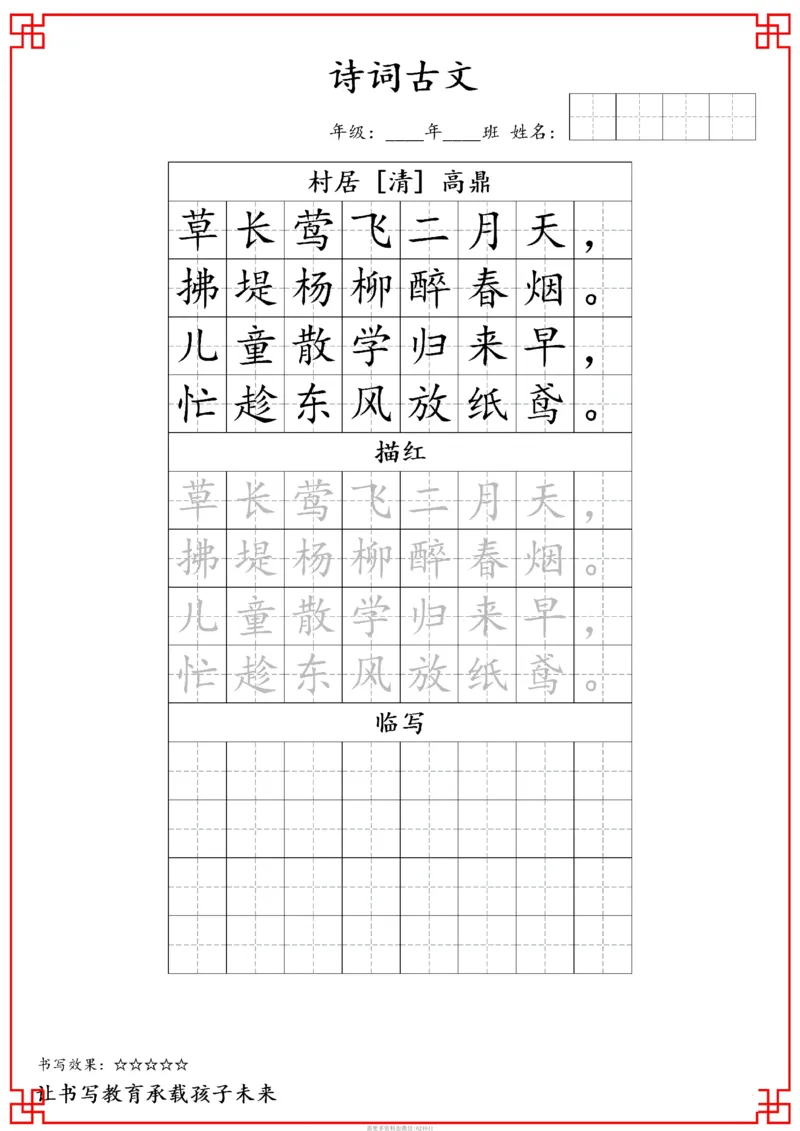 诗词古文
年级：____年____班 姓名：
村居 [清] 高鼎
草长莺飞二月天，
拂堤杨柳醉春烟。
儿童散学归来早，
忙趁东风放纸鸢。
描红
草长莺飞二月天，
拂堤杨柳醉春烟。
儿童散学归来早，
忙趁东风放纸鸢。
临写
书写效果：☆☆☆☆☆
让书写教育承载孩子未来